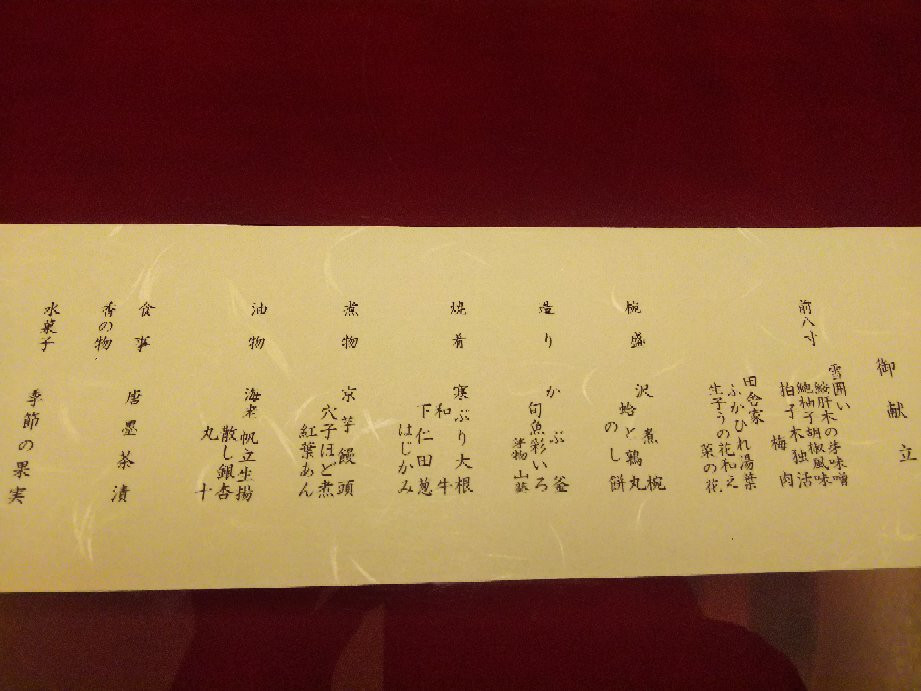 御献立
前八寸
雪囲い
鮟肝木の芽味噌
鮑柚子胡椒風味
拍子木独活
梅肉
田舎家
ふかひれ湯葉
生子うの花和え
菜の花
椀盛
沢煮椀
蛤と鶉丸
のし餅
造り
かぶら釜
旬魚彩いろ
津物山葵
焼肴
寒ぶり大根
和牛
下仁田葱
はじかみ
煮物
京芋饅頭
穴子ほど煮
紅葉あん
油物
海老帆立生揚
散し銀杏
丸十
食事
唐墨茶漬
香の物
水菓子
季節の果実